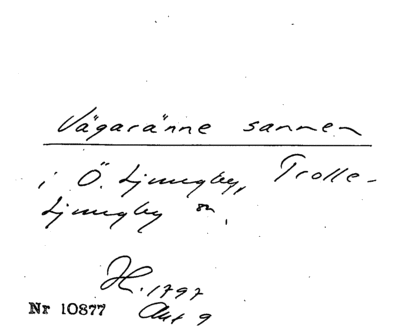 Vägaränne sannen
i Ö. Ljungby, Trolle-
Ljungby sn.
H. 1797
Akt 9
Nr 10877